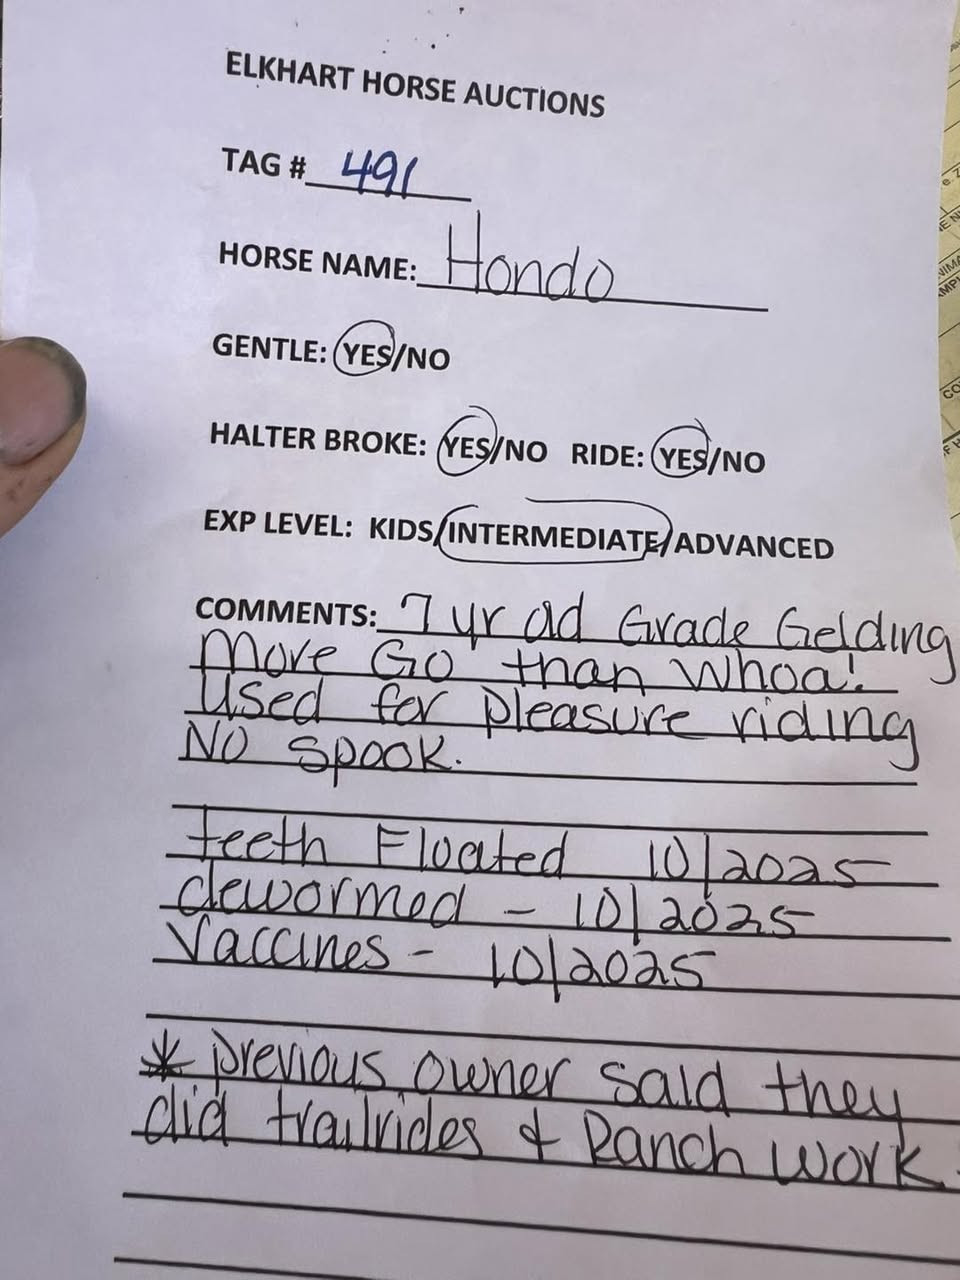 ELKHART HORSE AUCTIONS
TAG # 491
HORSE NAME: Hondo
GENTLE: YES/NO
HALTER BROKE: YES/NO RIDE: YES/NO
EXP LEVEL: KIDS/INTERMEDIATE/ADVANCED
COMMENTS: 7 yr old Grade Gelding
More Go than Whoa!
Used for pleasure riding
No Spook.
teeth Floated 10/2025
dewormed - 10/2025
Vaccines - 10/2025
* previous owner said they
did trailrides & Ranch work.